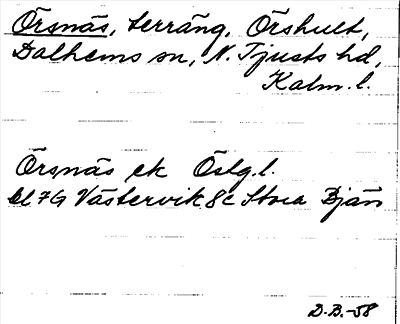 Örsnäs, terräng, Örshult,
Dalhems sn, N. Tjusts hd,
Kalm. l.
Örsnäs ek Östg. l.
bl 7G Västervik 8c Stora Bjän
D.B.-58